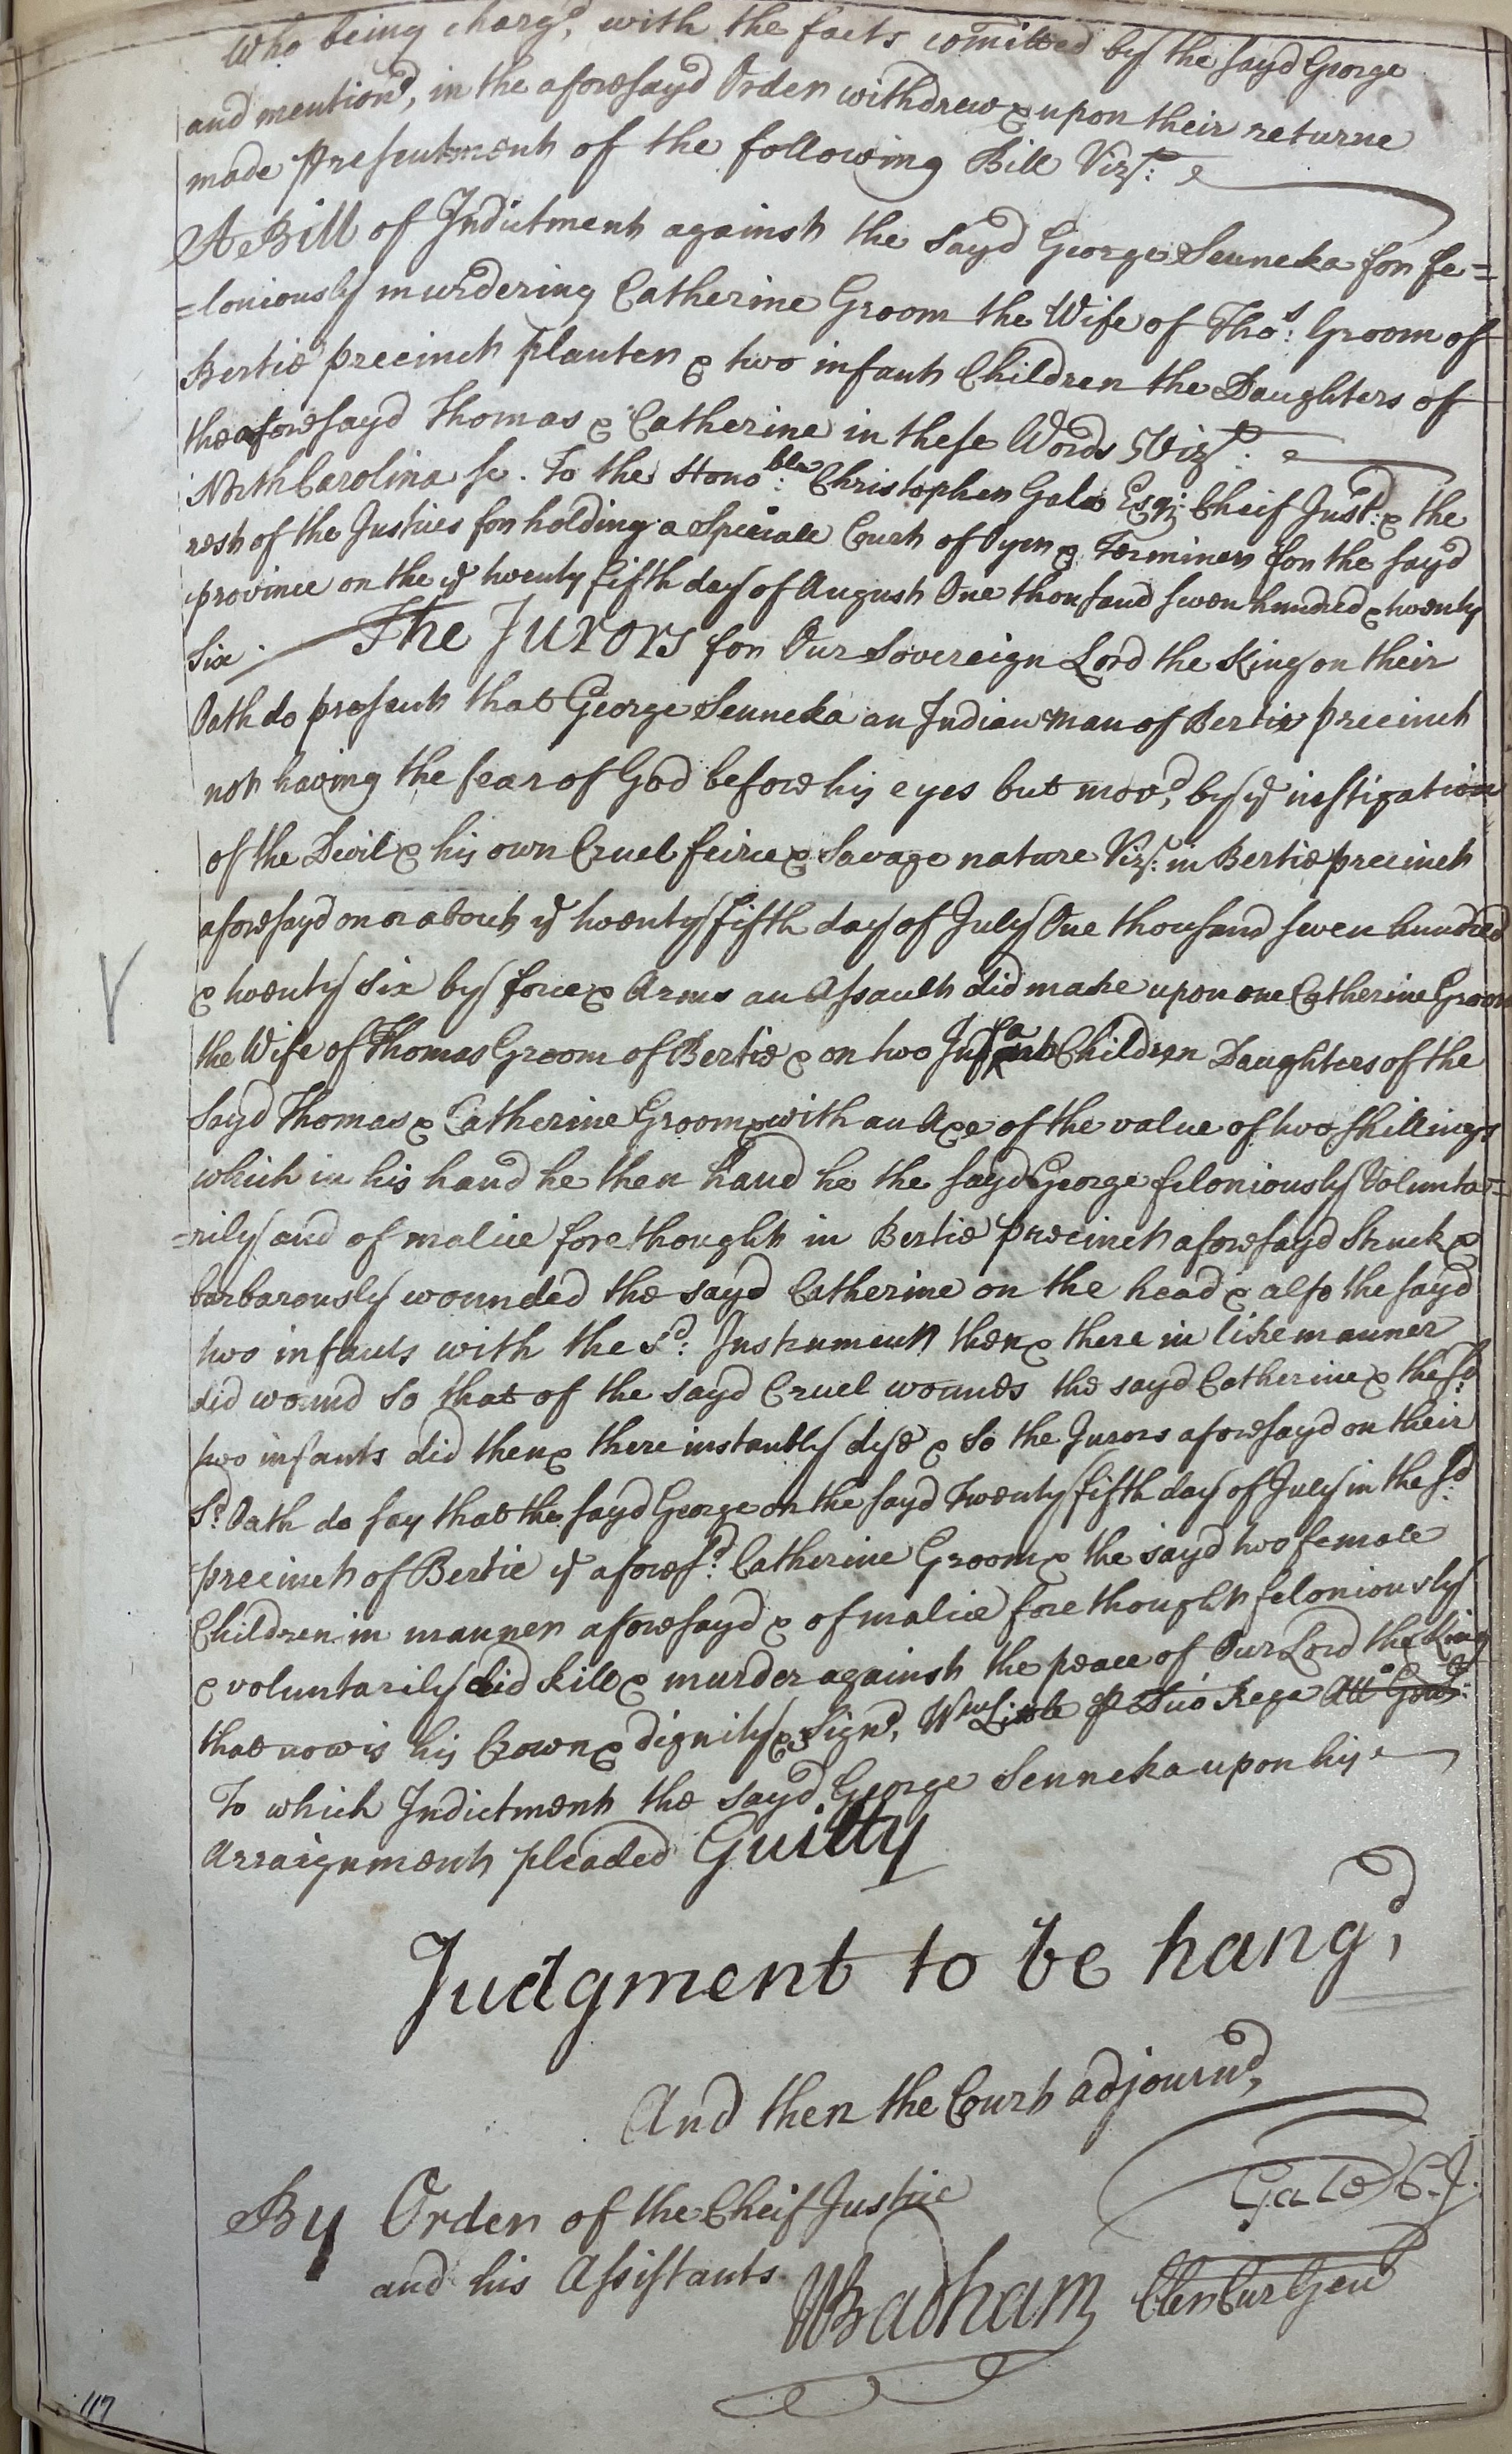 Who being charg'd, with the facts comitted by the sayd George
and mention'd, in the aforesayd Order withdrew & upon their returne
made Presentment of the following Bill Vizt:
A Bill of Indictment against the Sayd George Senneka for fe=
=loniously murdering Catherine Groom the Wife of Thos: Groom of
Bertie precinct planter & two infant Children the Daughters of
the aforesayd Thomas & Catherine in these Words Vizt:
North Carolina sc. To the Honoble: Christopher Gale Esqr Cheif Just: & the
rest of the Justices for holding a Speciall Court of Oyer & Terminer for the sayd
province on the ye twenty fifth day of August One thousand seven hundred & twenty
Six. The Jurors for Our Sovereign Lord the King on their
Oath do present that George Senneka an Indian man of Bertie precinct
not having the fear of God before his eyes but mov'd, by ye instigation
of the Devil & his own Cruel feirce & Savage nature Vizt: in Bertie precinct
aforesayd on or about ye twenty fifth day of July One thousand seven hundred
& twenty Six by force & Arms an Assault did make upon one Catherine Groom
the Wife of Thomas Groom of Bertie & on two Infant Children Daughters of the
Sayd Thomas & Catherine Groom & with an Axe of the value of two shillings
which in his hand he then haud he the sayd George feloniously Volunta=
=rily and of malice forethought in Bertie precinct aforesayd Struck &
barbarously wounded the sayd Catherine on the head & also the sayd
two infants with the sd: Instrument then & there in like manner
did wound so that of the sayd Cruel wounds the sayd Catherine & the sd
two infants did then & there instantly dye & So the Jurors aforesayd on their
Sd: Oath do say that the sayd George on the sayd Twenty fifth day of July in the sd
precinct of Bertie ye aforesd: Catherine Groom & the sayd two female
Children in manner aforesayd & of malice forethought feloniously
& voluntarily did kill & murder against the peace of Our Lord the King
that now is his Crown & dignity & Sign'd, Wm Little Dno Rege Atto Genl:
To which Indictment the sayd George Senneka upon his
Arraignment pleaded Guilty
Judgment to be hang'd,
And then the Court adjourn'd,
By Order of the Cheif Justice
Gale C. J.
and his Assistants
WBadham Cler Cur Gen
117